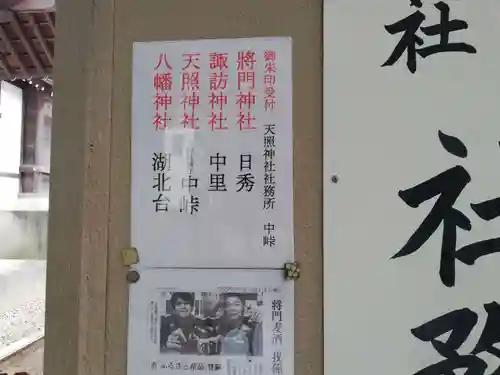 社
社務
御朱印受付 天照神社社務所 中峠
將門神社 日秀
諏訪神社 中里
天照神社 中峠
八幡神社 湖北台
将門麦酒 我孫